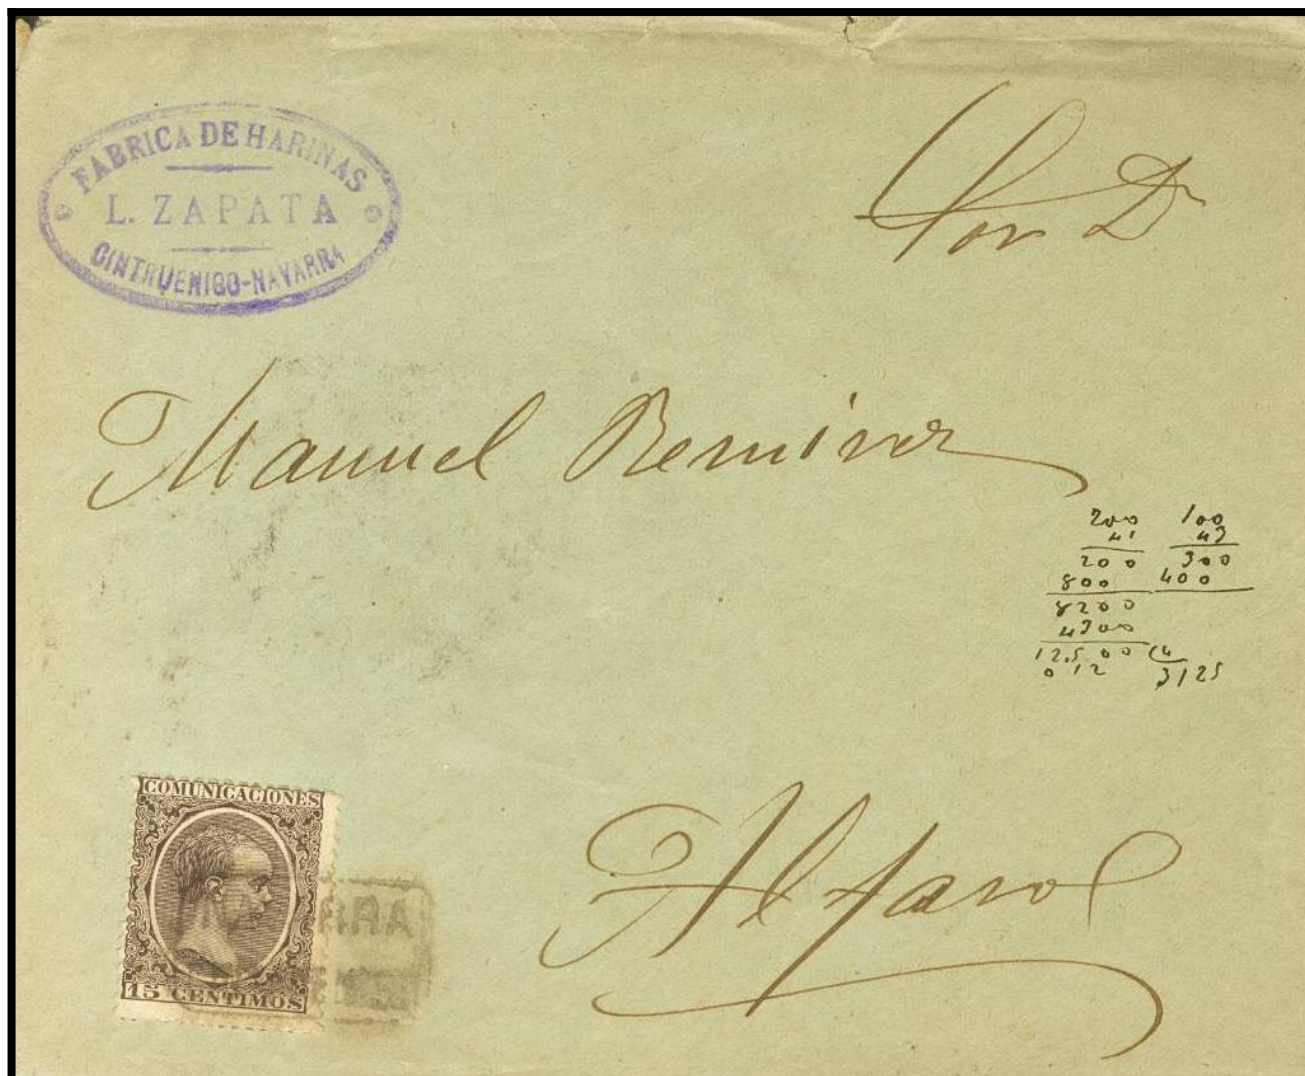 FABRICA DE HARINAS
L. ZAPATA
CINTRUENIGO-NAVARRA
Sor Dn
Manuel Remirez
200 100
41 43
200 300
800 400
8200
4300
12,500 4
012 3125
COMUNICACIONES
15 CENTIMOS
ARR
Alfaro